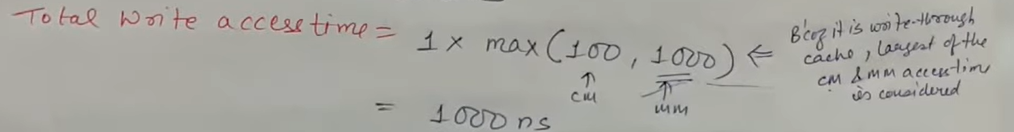 Total write access time = 1 × max(100, 1000) ⇐
↑ cm
↑ mm
B'coz it is write-through
cache, largest of the
cm & mm access time
is considered
= 1000 ns